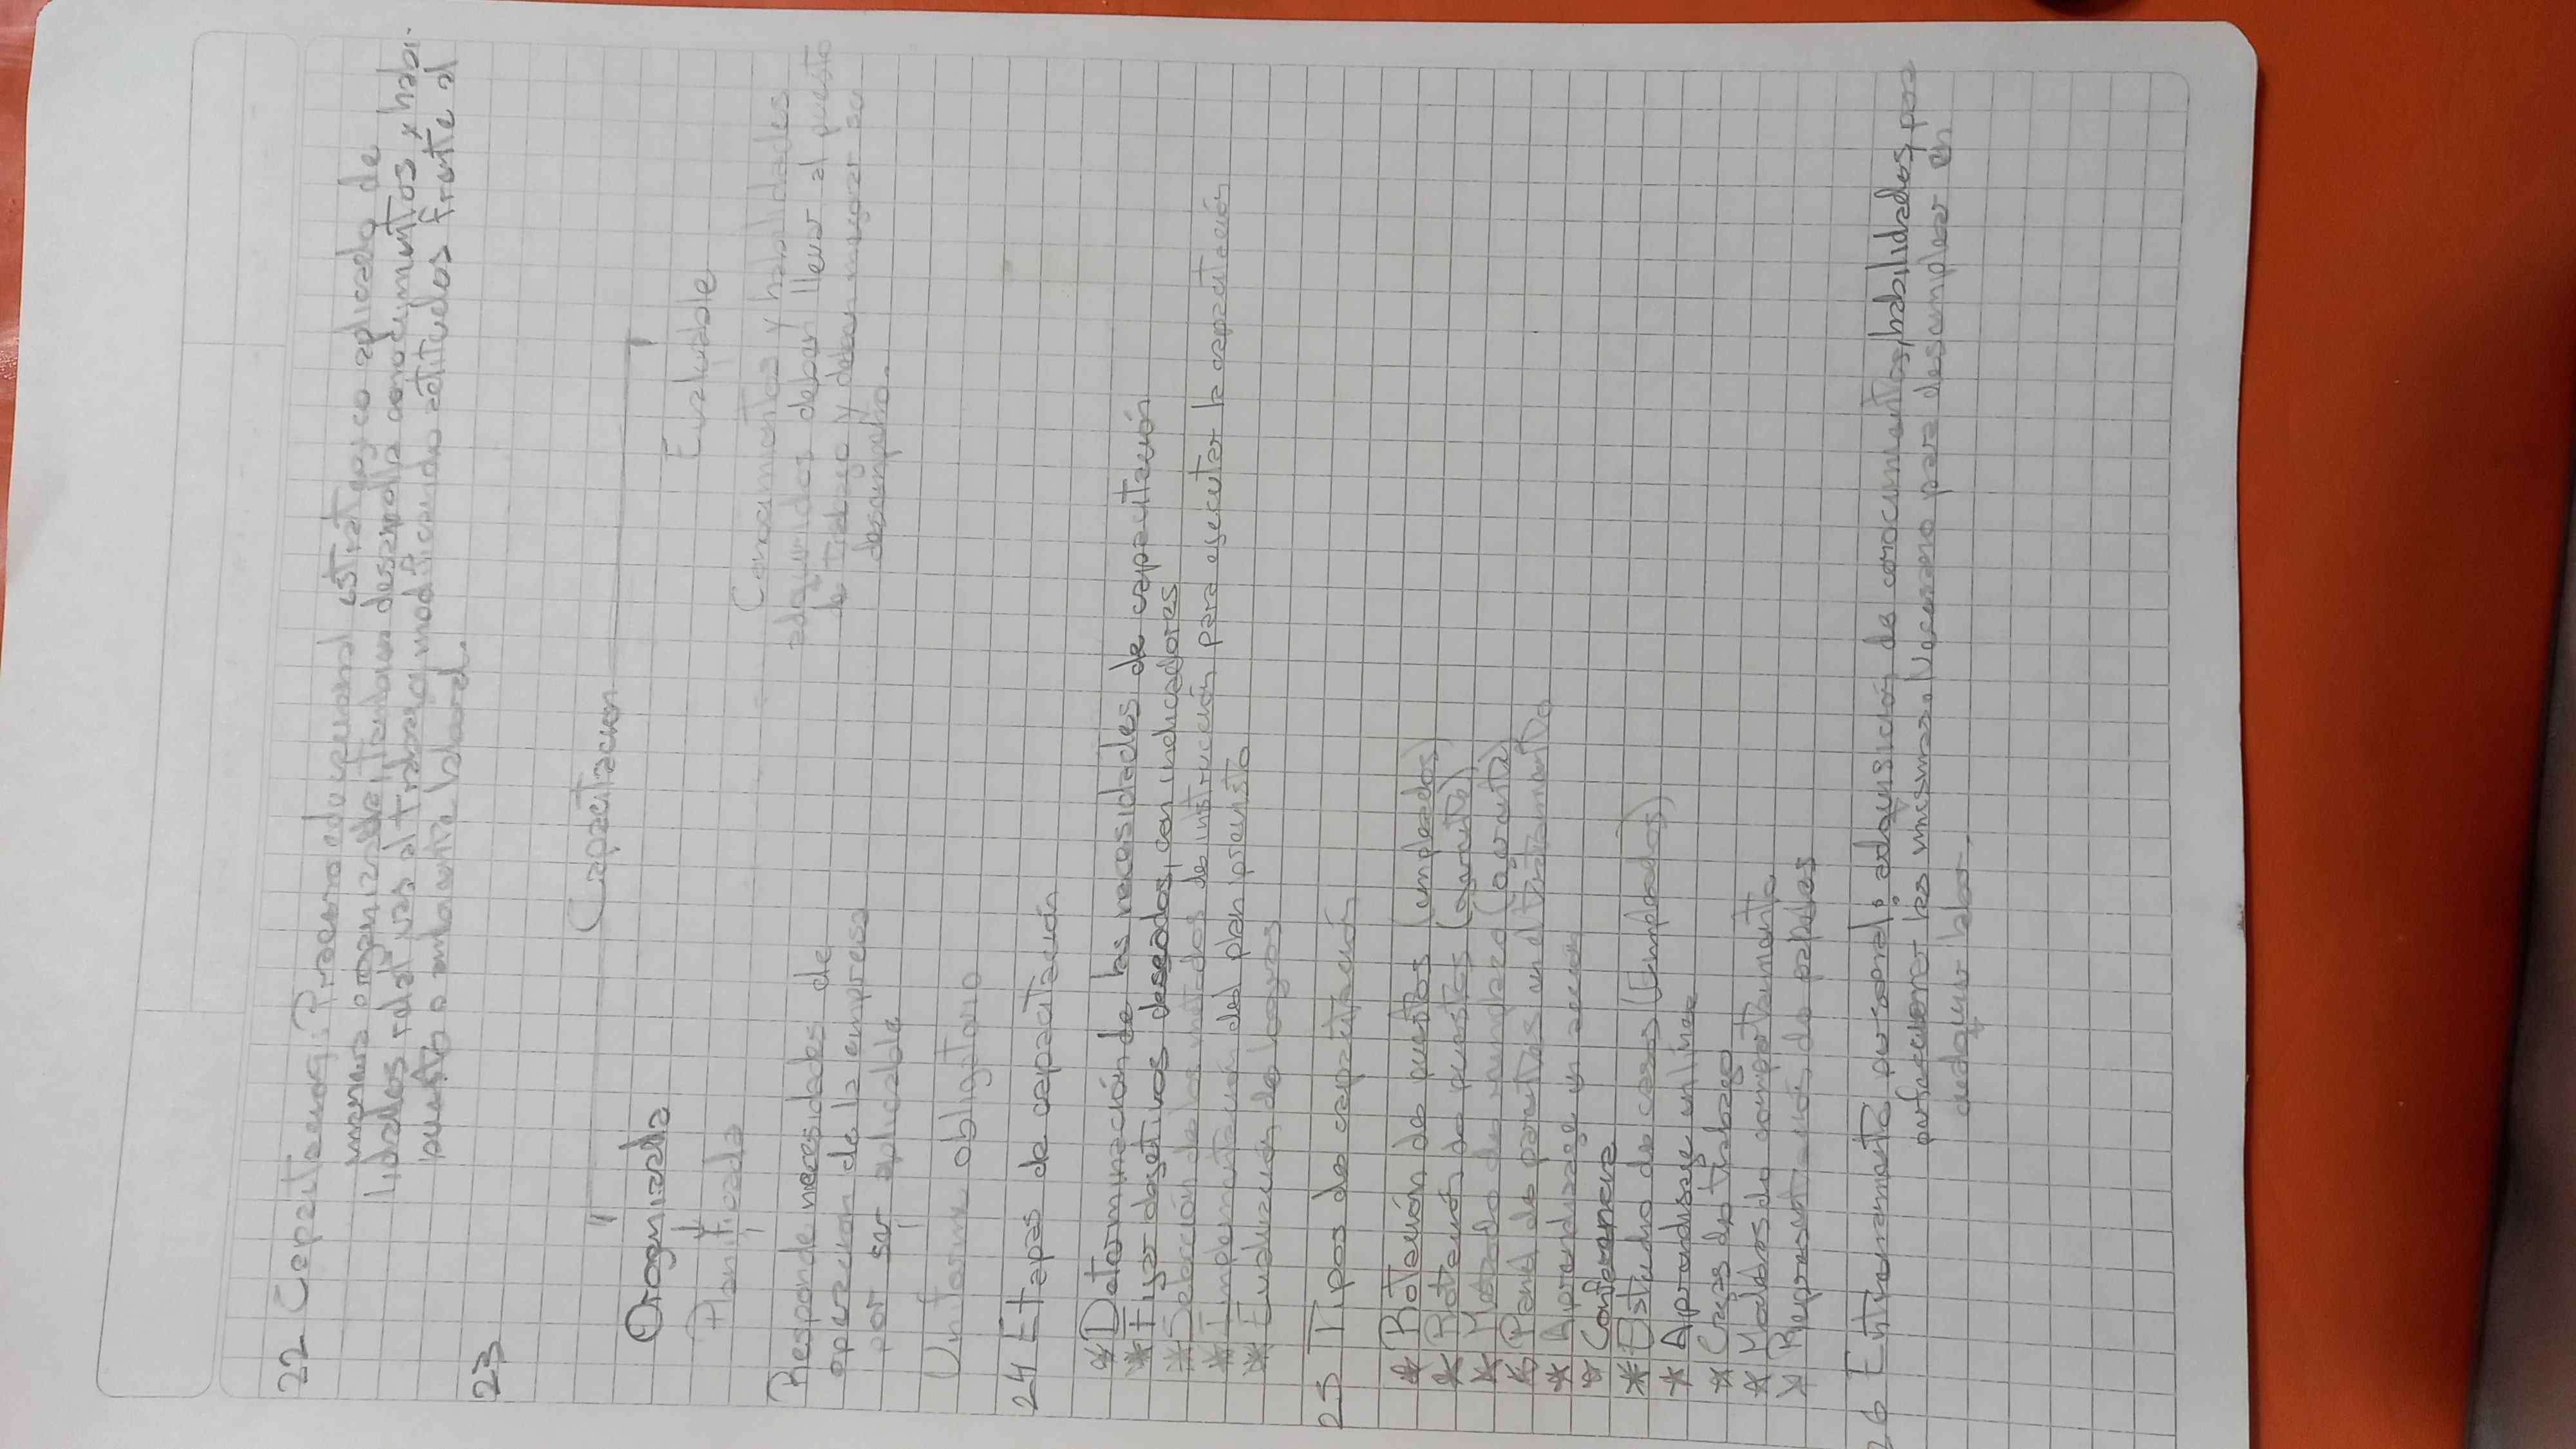 22 Capacitación: Proceso educacional estratégico aplicado de
manera organizada
desarrolla conocimientos y habi-
lidades al trabajo, modificando actitudes frente al
puesto o ambiente laboral.
23
Capacitacion
Organizada
Evaluable
Planificada
Responde necesidades de
operacion de la empresa
por ser aplicable
Conocimientos y habilidades
adquiridos deban llevar al puesto
de trabajo y deban mejorar su
desempeño.
Uniforme obligatorio
24 Etapas de capacitación
* Determinación de las necesidades de capacitación
* Fijar objetivos deseados, con indicadores
* Selección de los métodos de instrucción para ejecutar la capacitación
* Implementación del plan previsto
* Evaluación de logros
25 Tipos de capacitación
* Rotación de puestos (empleados)
* Rotación de puestos (gerente)
* Método de reemplazo (gerente)
* Panel de
* Aprendizaje en acción
* Conferencia
* Estudio de casos (Empleados)
* Aprendisaje en linea
* de trabajo
* Modelos de comportamiento
* Representación de papeles
26 Entrenamiento personal: adquisición de conocimientos, habilidades,
perfeccionar las mismas. Necesario para desemplear en
labor.